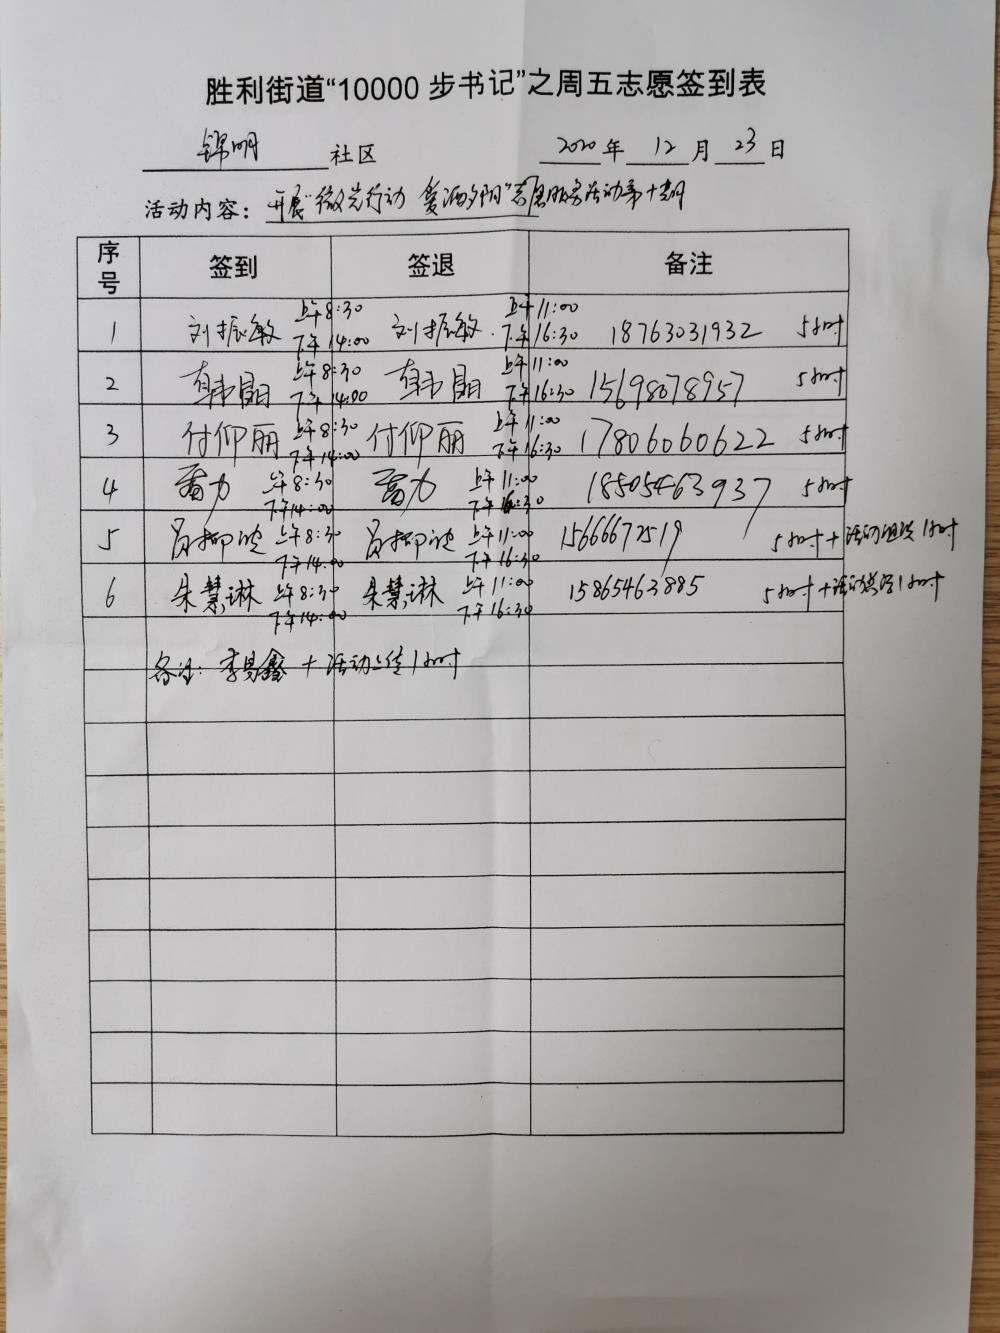 胜利街道“10000步书记”之周五志愿签到表
锦明 社区 2020年 12 月 23 日
活动内容：开展“微光行动 爱洒夕阳”志愿服务活动第十期
序号 签到 签退 备注
1 刘振敏 上午8:30 下午14:00 刘振敏 上午11:00 下午16:30 18763031932 5小时
2 韩晶 上午8:30 下午14:00 韩晶 上午11:00 下午16:30 15698078957 5小时
3 付仰丽 上午8:30 下午14:00 付仰丽 上午11:00 下午16:30 17806060622 5小时
4 上午8:30 下午14:00 上午11:00 下午16:30 18505463937 5小时
5 上午8:30 下午14:00 上午11:00 下午16:30 15666672519 5小时+活动组织1小时
6 朱慧琳 上午8:30 下午14:00 朱慧琳 上午11:00 下午16:30 15865463885 5小时+活动 1小时
备注：李易鑫+活动上传1小时